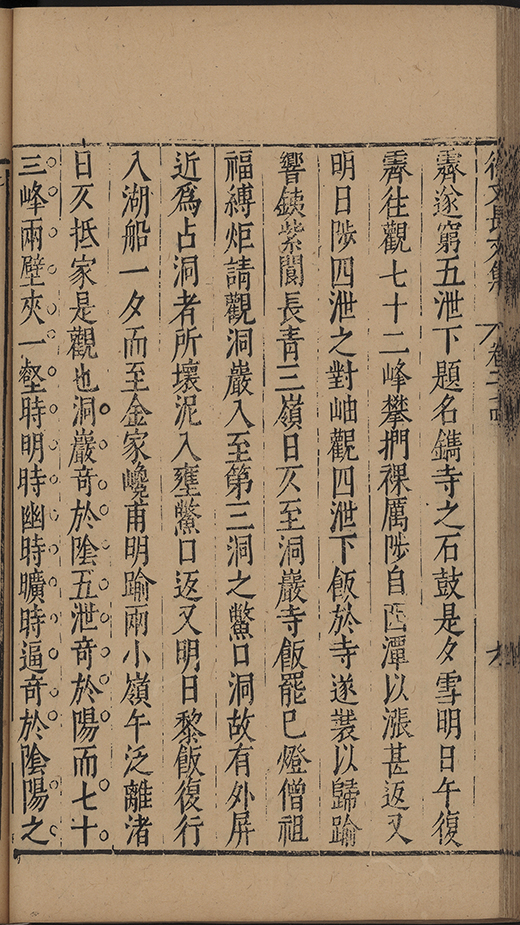 徐文長文集 卷二 記
霽遂窮五泄下題名鐫寺之石鼓是夕雪明日午復
霽往觀七十二峰攀捫裸厲陟自西潭以漲甚返又
明日陟四泄之對岫觀四泄下飯於寺遂裝以歸踰
響鐵紫閬長青三嶺日夕至洞巖寺飯罷已燈僧祖
福縛炬請觀洞巖入至第三洞之鱉口洞故有外屏
近爲占洞者所壞泥入壅鱉口返又明日黎飯復行
入湖船一夕而至金家巉甫明踰兩小嶺午泛離渚
日夕抵家是觀也洞巖奇於陰五泄奇於陽而七十
三峰兩壁夾一壑時明時幽時曠時逼奇於陰陽之